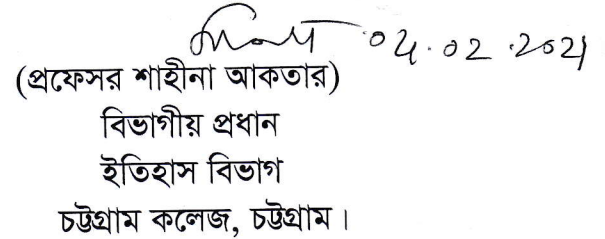 ০৪.০২.২০২১
(প্রফেসর শাহীনা আকতার)
বিভাগীয় প্রধান
ইতিহাস বিভাগ
চট্টগ্রাম কলেজ, চট্টগ্রাম।